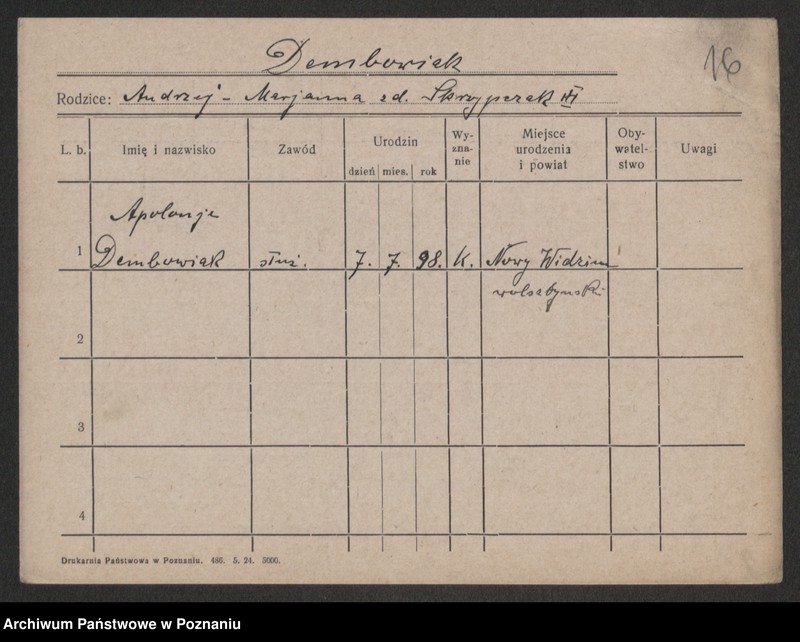 Dembowiak
16
Rodzice: Andrzej - Marjanna zd. Skrzypczak
L. b. Imię i nazwisko Zawód Urodzin Wy-zna-nie Miejsce urodzenia i powiat Oby-watel-stwo Uwagi
dzień mies. rok
Apolonja
1 Dembowiak służ. 7. 7. 98. K. Nowy Widzim
wolsztyński
2
3
4
Drukarnia Państwowa w Poznaniu. 486. 5. 24. 5000.
Archiwum Państwowe w Poznaniu